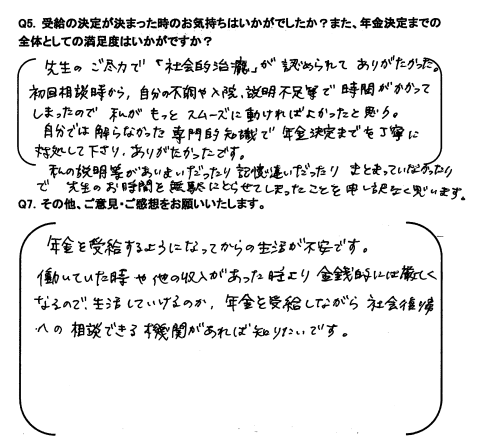 Q5. 受給の決定が決まった時のお気持ちはいかがでしたか？また、年金決定までの
全体としての満足度はいかがですか？
先生のご尽力で「社会的治癒」が認められてありがたかった。
初回相談時から、自分の不調や入院、説明不足等で時間がかかって
しまったので私がもっとスムーズに動ければよかったと思う。
自分では解らなかった専門的知識で年金決定までを丁寧に
対処して下さり、ありがたかったです。
私の説明等があいまいだったり記憶違いだったりまとまっていなかったり
で先生のお時間を無駄にとらせてしまったことを申し訳なく思います。
Q7. その他、ご意見・ご感想をお願いいたします。
年金を受給するようになってからの生活が不安です。
働いていた時や他の収入があった時より金銭的には厳しく
なるので、生活していけるのか、年金を受給しながら社会復帰
への相談できる機関があれば知りたいです。